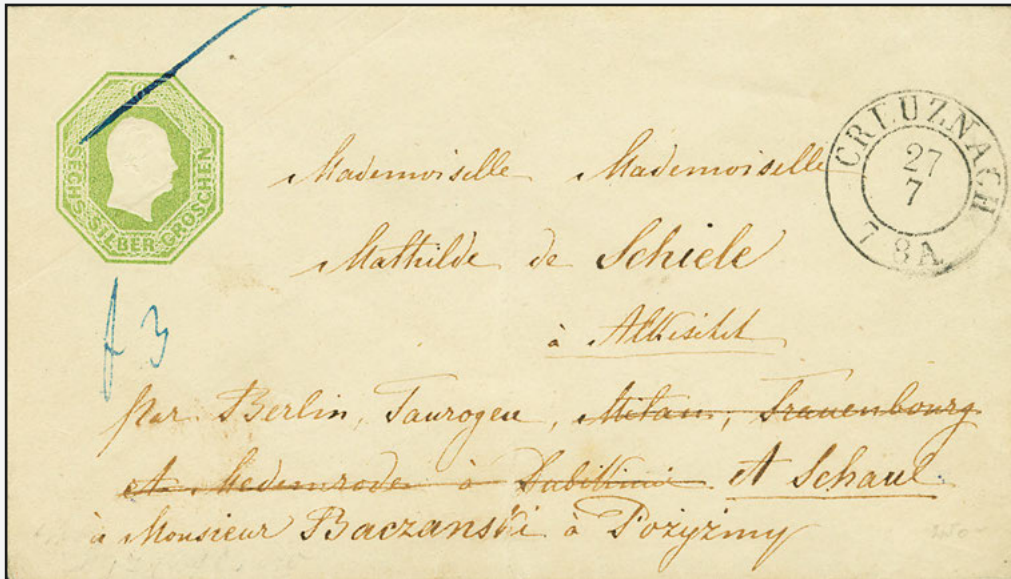 SECHS SILBER GROSCHEN
CREUZNACH
27
7
7 8 A
Mademoiselle Mademoiselle
Mathilde de Schiele
à
f 3
par Berlin, Taurogen, Mitau, Frauenbourg
et à et Schaul
à Monsieur Baczanski à Pożyżmy